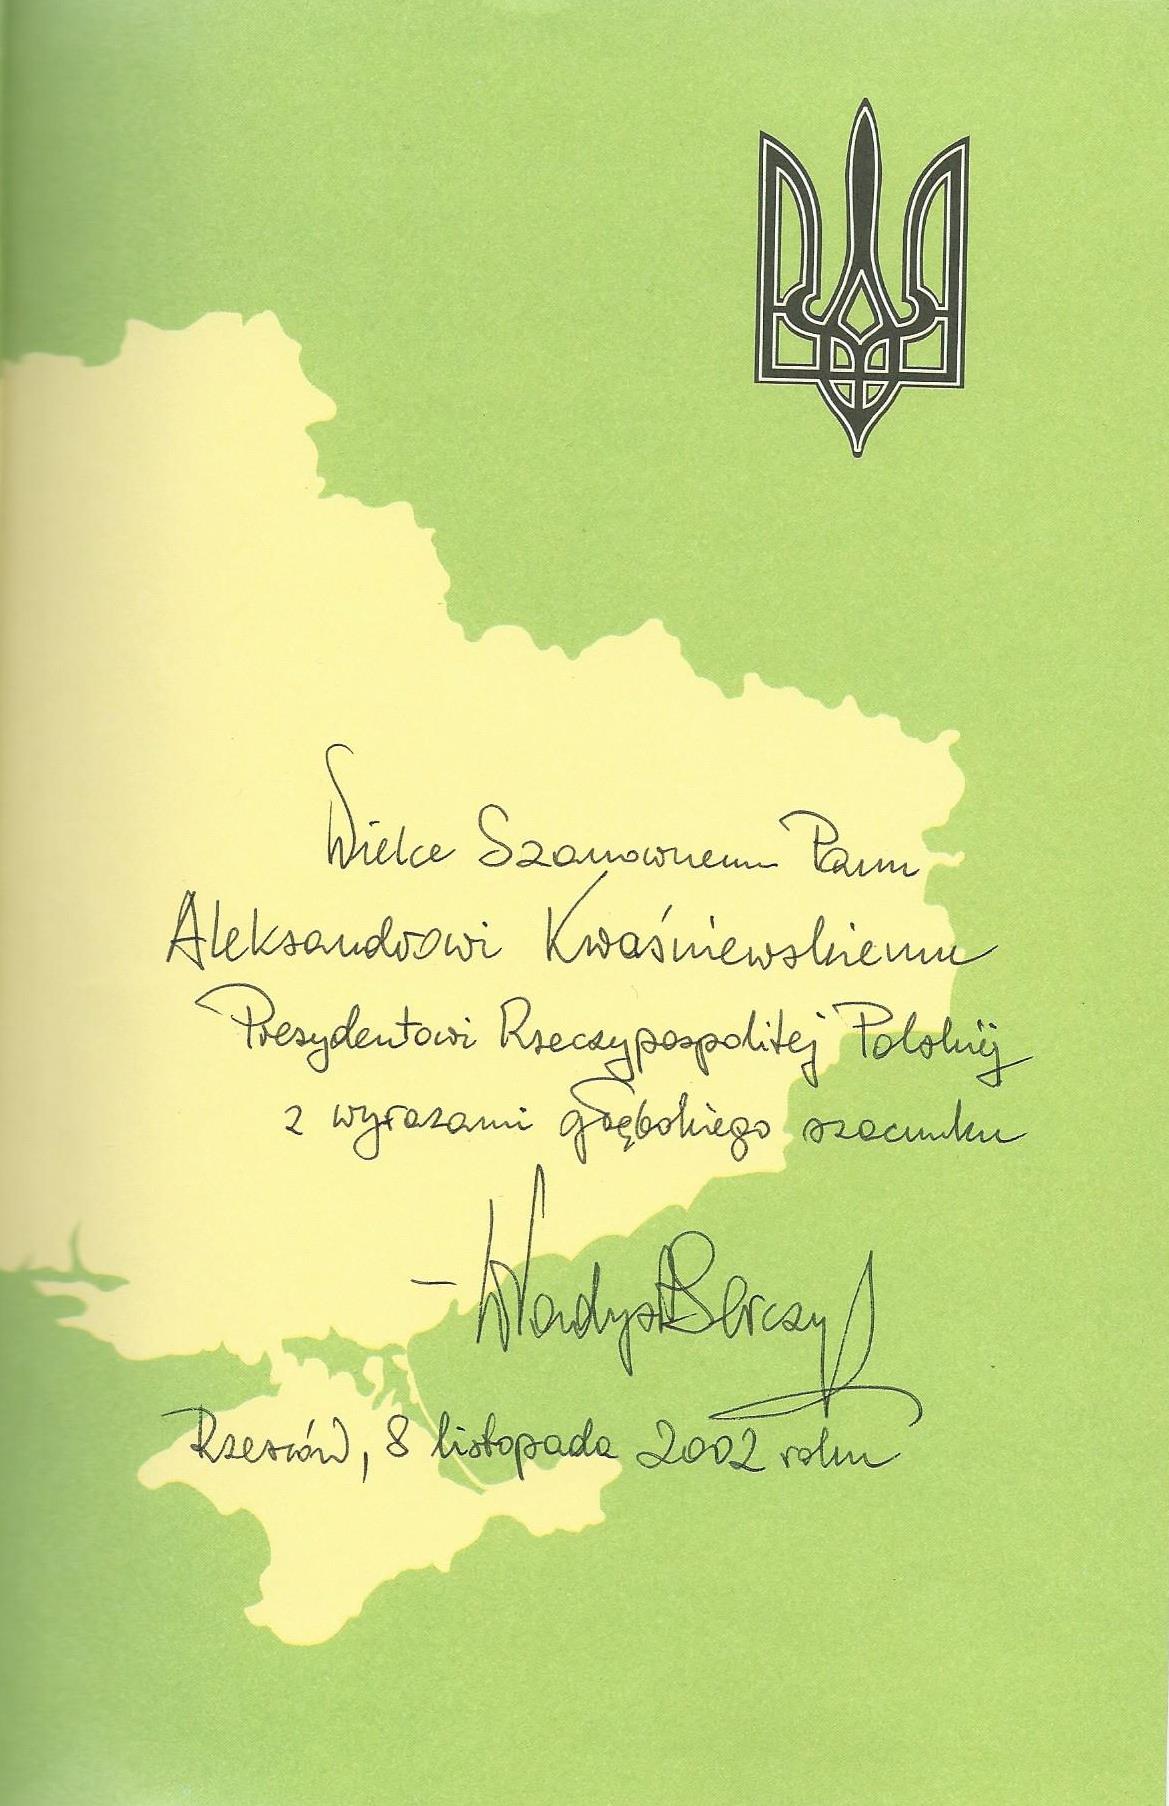 Wielce Szanownemu Panu
Aleksandrowi Kwaśniewskiemu
Prezydentowi Rzeczypospolitej Polskiej
z wyrazami głębokiego szacunku
Rzeszów, 8 listopada 2002 roku